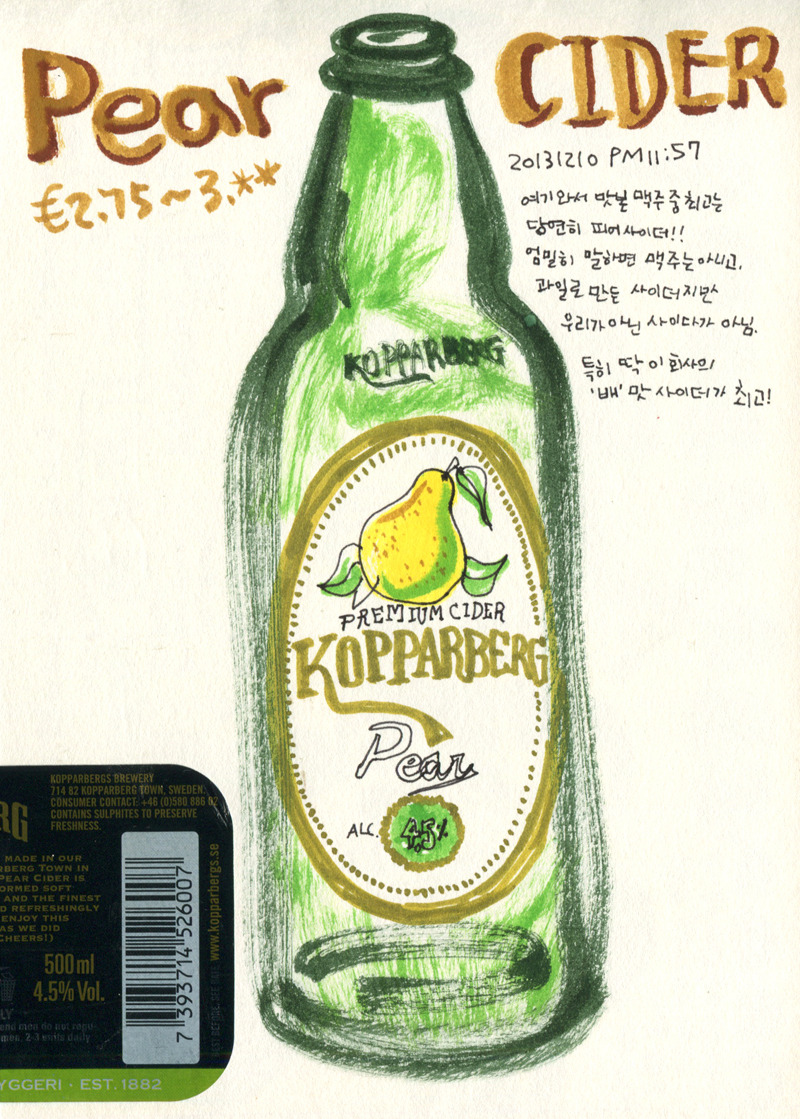 Pear CIDER
€2.75~3.**
20131210 PM11:57
여기와서 맛본 맥주중 최고는
당연히 피어사이더!!
엄밀히 말하면 맥주는아니고,
과일로 만든 사이더지만
우리가아는 사이다가 아님.
특히 딱 이 회사의
'배' 맛 사이더가 최고!
KOPPARBERG
PREMIUM CIDER
KOPPARBERG
Pear
ALC. 4.5%
KOPPARBERGS BREWERY
714 82 KOPPARBERG TOWN, SWEDEN.
CONSUMER CONTACT: +46 (0)580 886 02
CONTAINS SULPHITES TO PRESERVE
FRESHNESS.
RG
MADE IN OUR
RBERG TOWN IN
PEAR CIDER IS
ORMED SOFT
AND THE FINEST
D REFRESHINGLY
ENJOY THIS
AS WE DID
CHEERS!)
www.kopparbergs.se
500ml
4.5% Vol.
7 393714 526007
LY
and men do not regu-
men, 2-3 units daily
YGGERI · EST. 1882